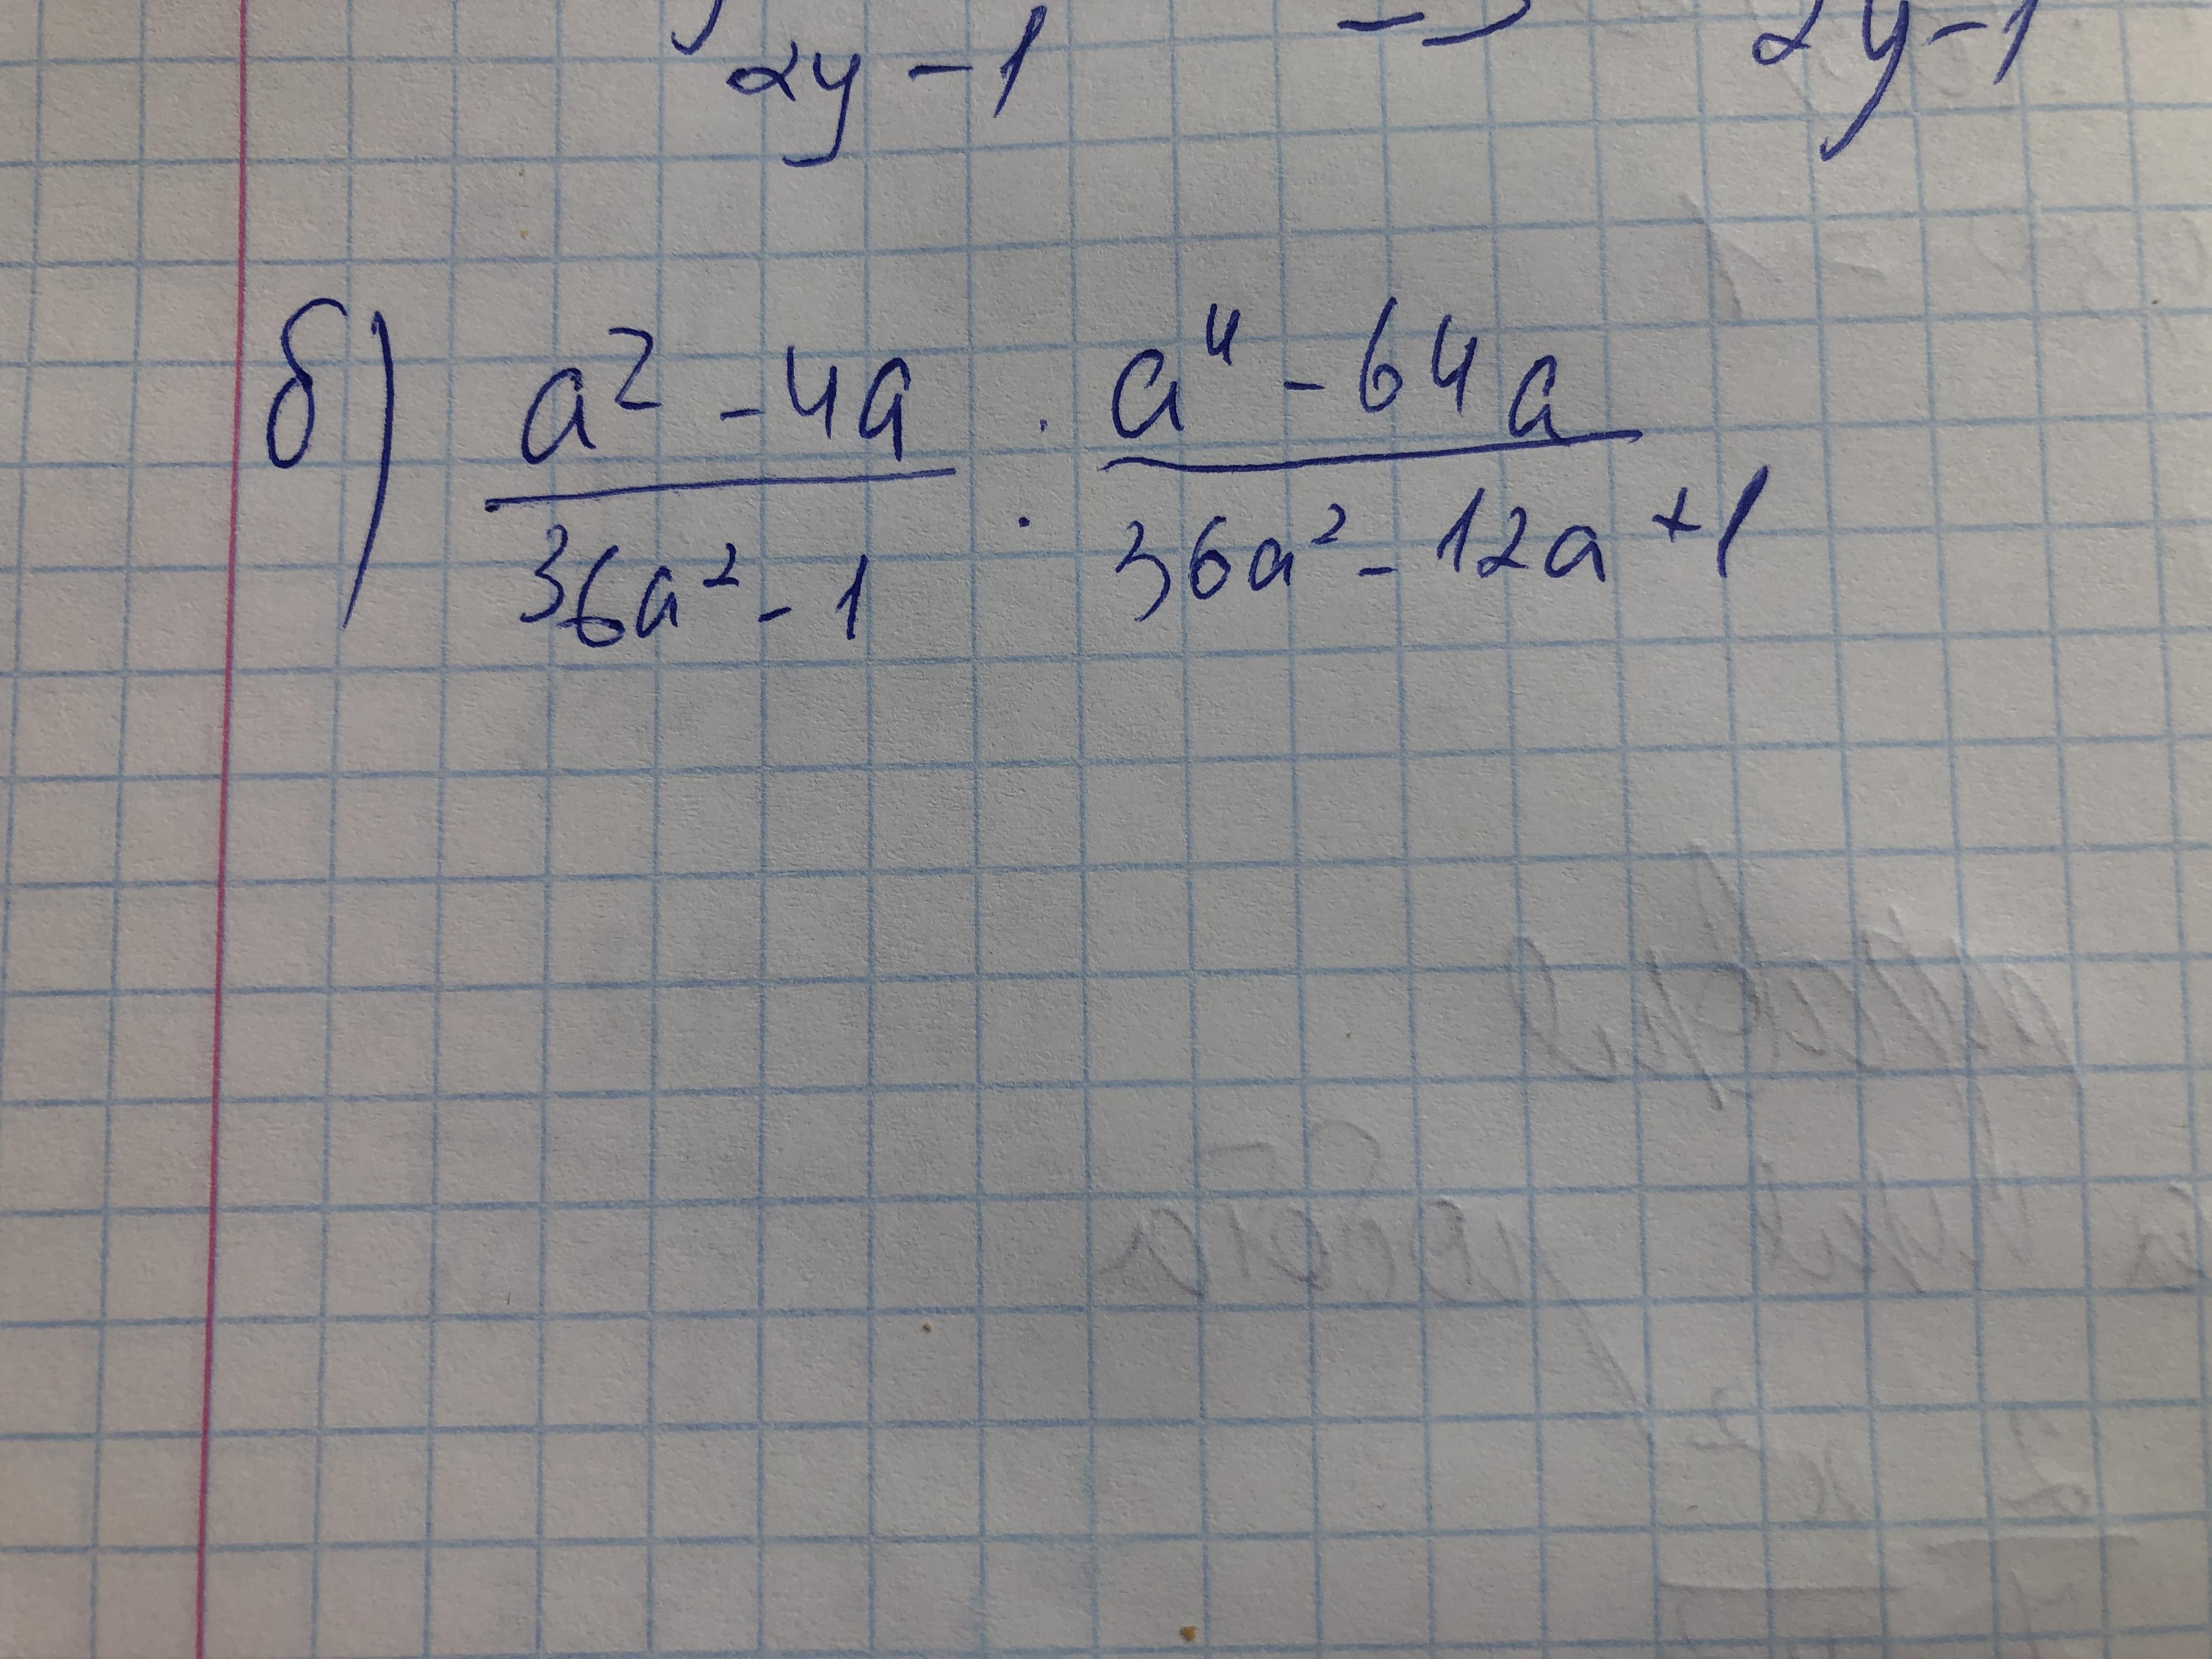 2y - 1 2y - 1
б) (a² - 4a)/(36a² - 1) : (a⁴ - 64a)/(36a² - 12a + 1)